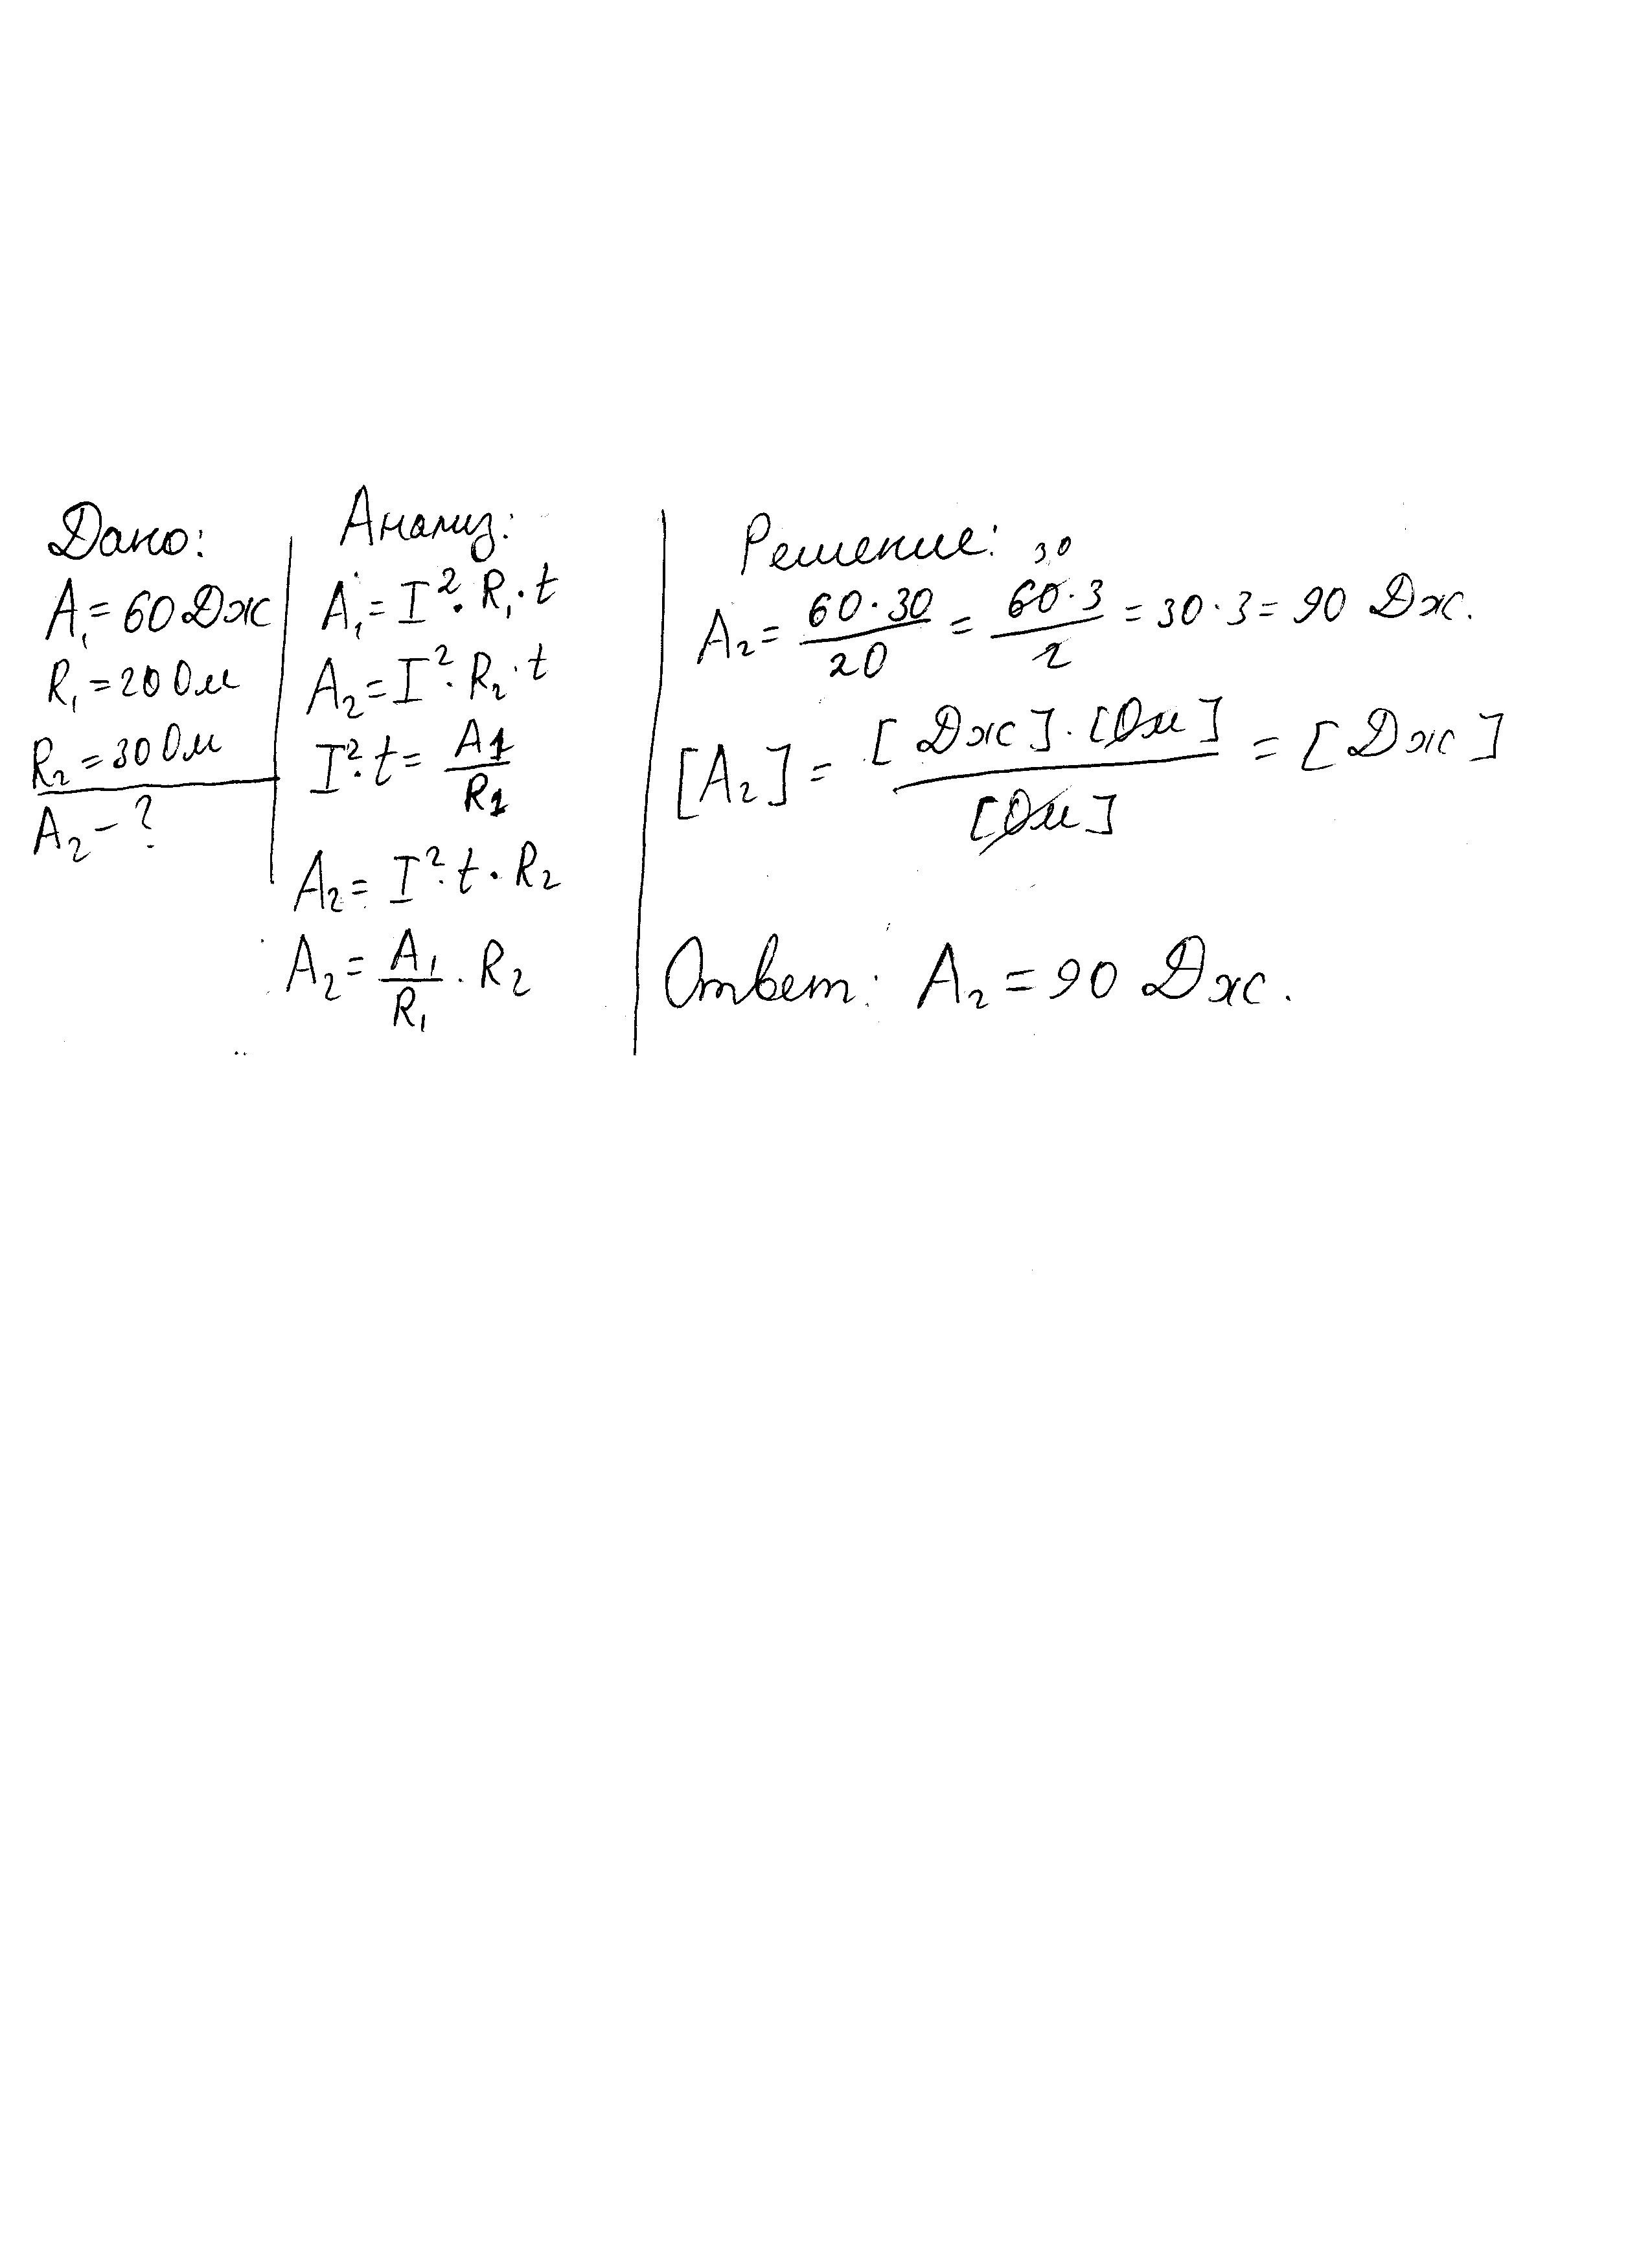 Дано:
A₁ = 60 Дж
R₁ = 20 Ом
R₂ = 30 Ом
A₂ - ?
Анализ:
A₁ = I² · R₁ · t
A₂ = I² · R₂ · t
I² · t = A1/R1
A₂ = I² · t · R₂
A₂ = A₁/R₁ · R₂
Решение:
30
A₂ = 60 · 30/20 = 60 · 3/2 = 30 · 3 = 90 Дж.
[A₂] = [Дж] · [Ом]/[Ом] = [Дж]
Ответ: A₂ = 90 Дж.